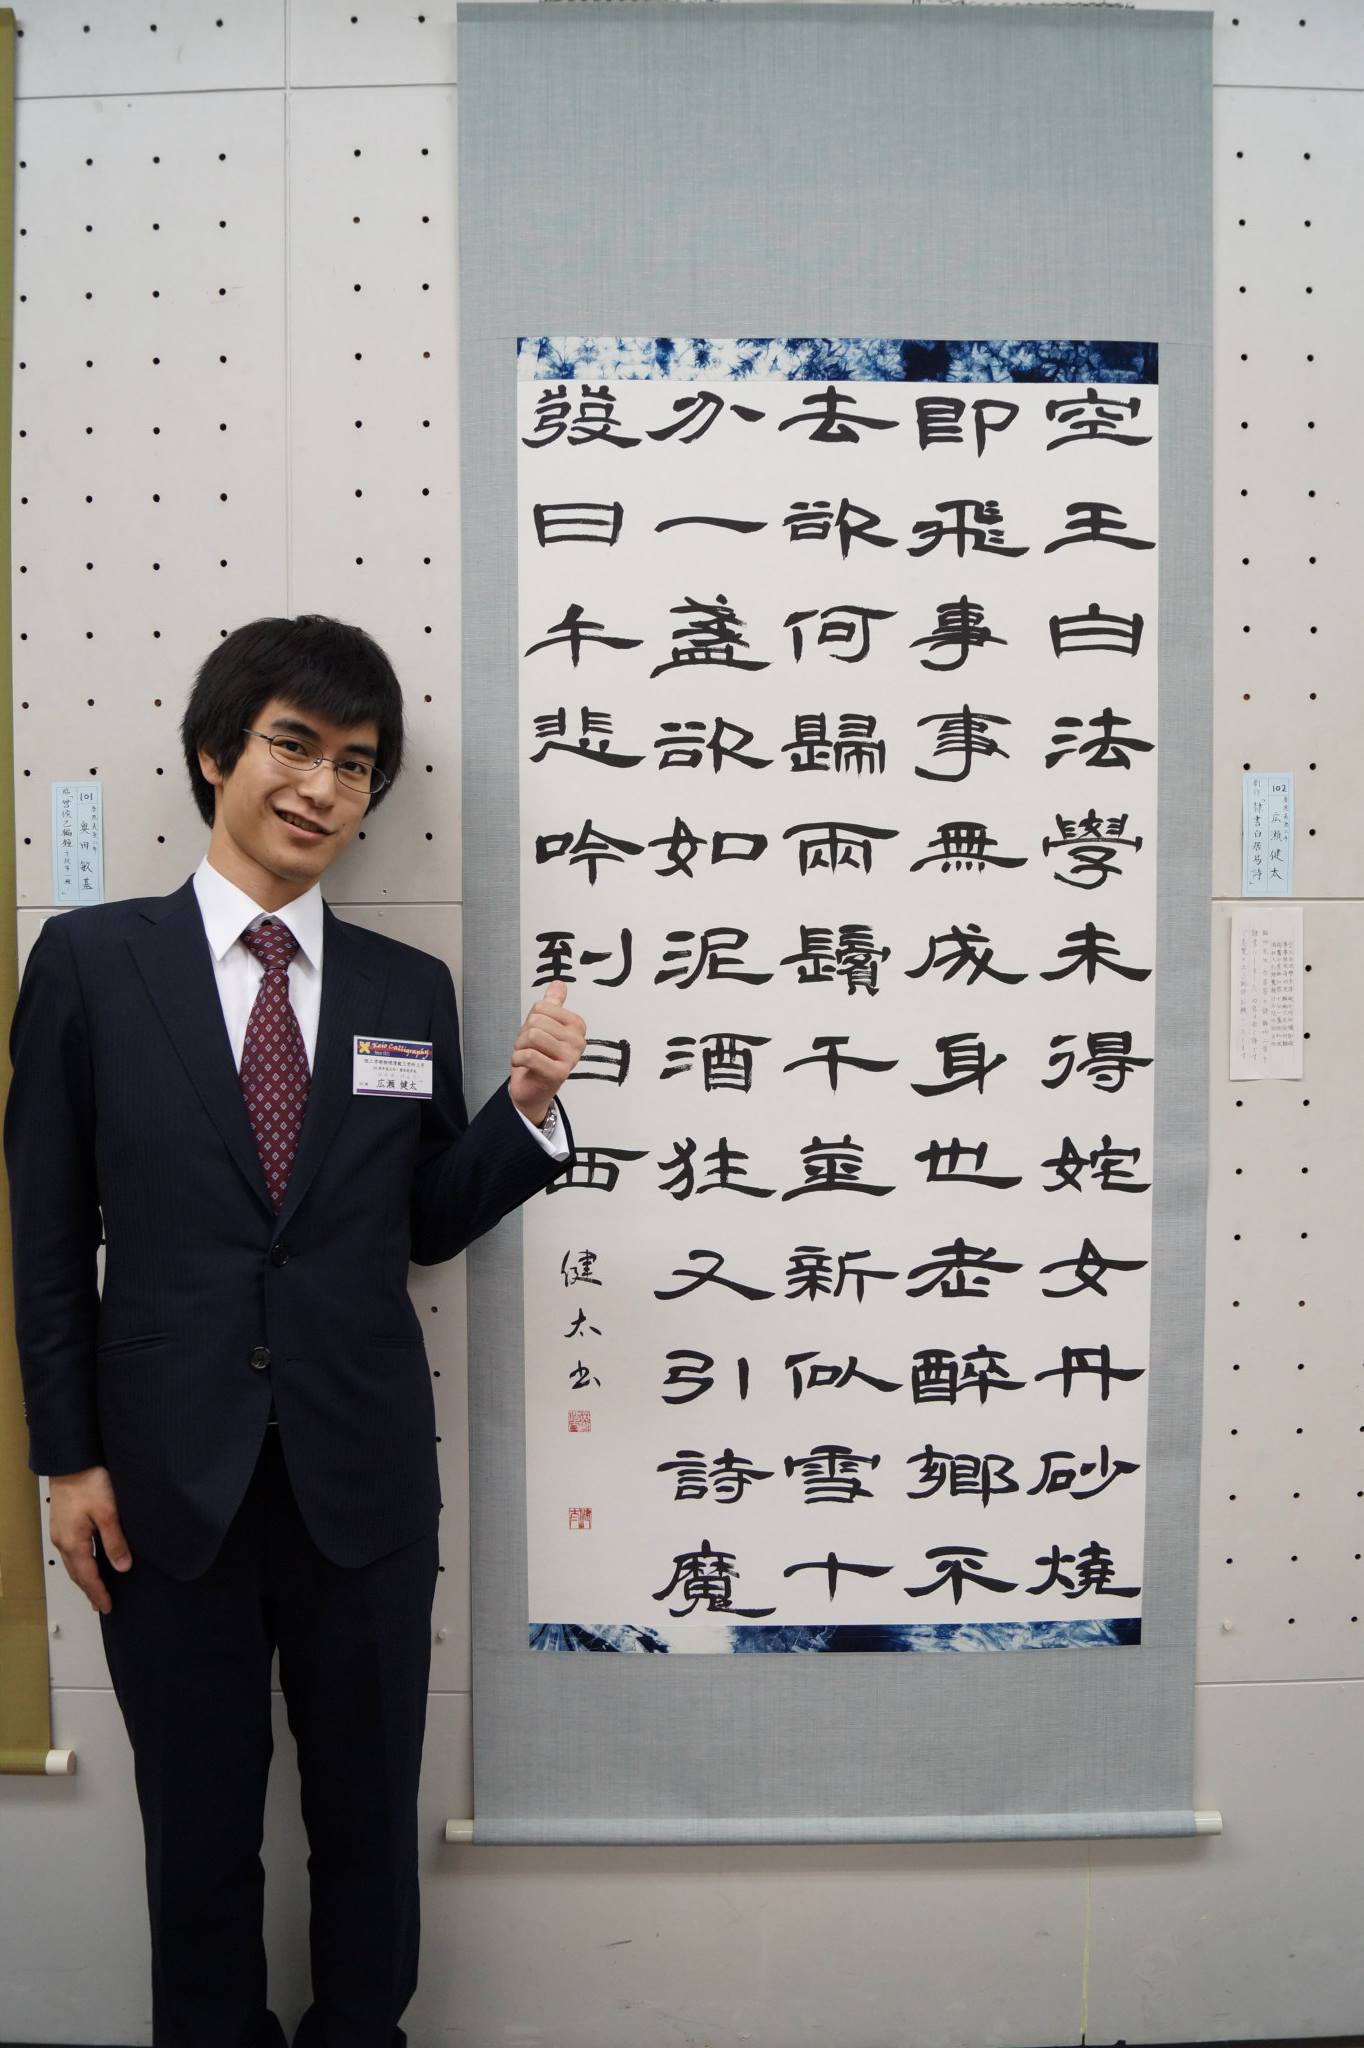 空王白法學未得姹女丹砂燒
即飛事事無成身也老醉鄉不
去欲何歸兩鬢千莖新似雪十
分一盞欲如泥酒狂又引詩魔
發日午悲吟到日西
健太書
Keio Calligraphy
広瀬 健太
101
奥田 敏基
臨「曾侯乙編鐘
102
広瀬 健太
創作「隸書白居易詩」